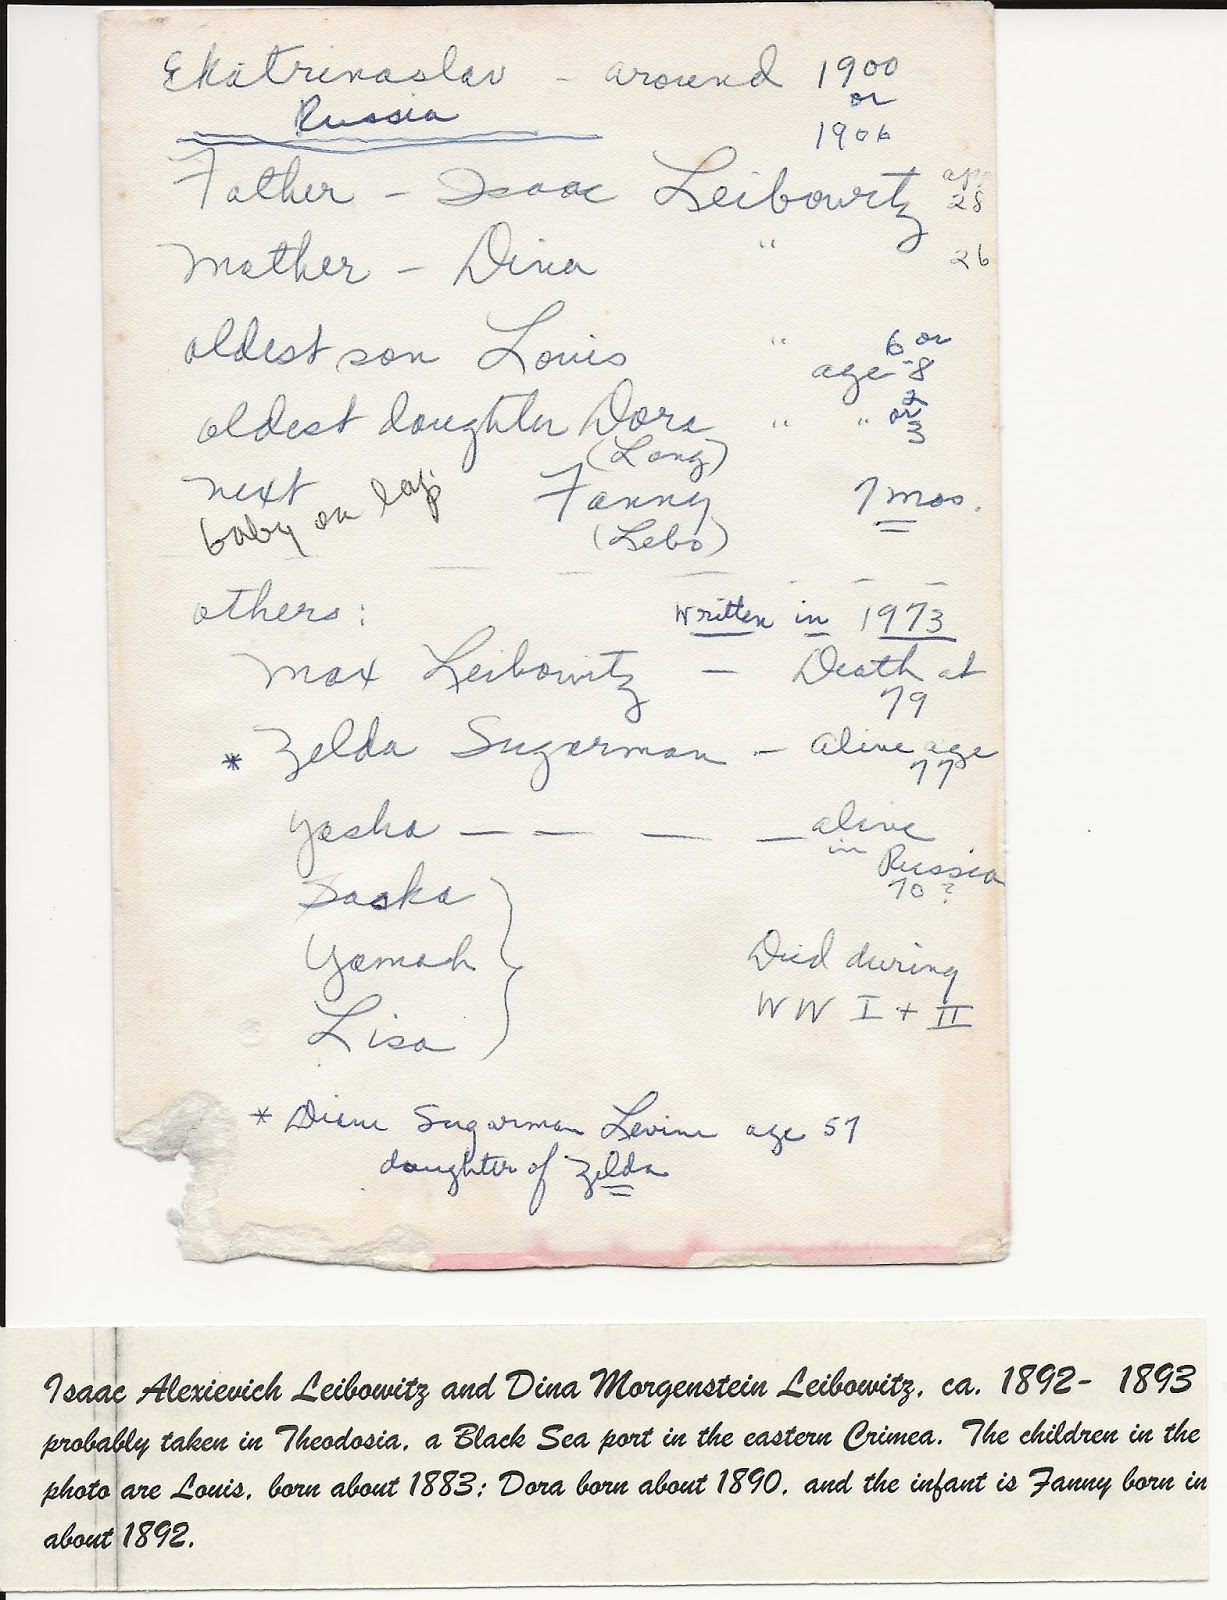 Ekatrinaslav - around 1900
or
Russia
1906
Father - Isaac Leibowitz app 28
Mother - Dina " 26
oldest son Louis " age 6 or 8
oldest daughter Dora " " 2 or 3
(Long)
next Fanny 7 mos.
baby on lap
(Lebo)
others: Written in 1973
Max Leibowitz - Death at
79
* Zelda Sugarman - alive age
77
Yasha — — — — alive
in Russia
70?
Sasha
Yamah Died during
WW I + II
Lisa
* Diane Sugarman Levine age 57
daughter of Zelda
Isaac Alexievich Leibowitz and Dina Morgenstein Leibowitz, ca. 1892- 1893
probably taken in Theodosia, a Black Sea port in the eastern Crimea. The children in the
photo are Louis, born about 1883; Dora born about 1890, and the infant is Fanny born in
about 1892.